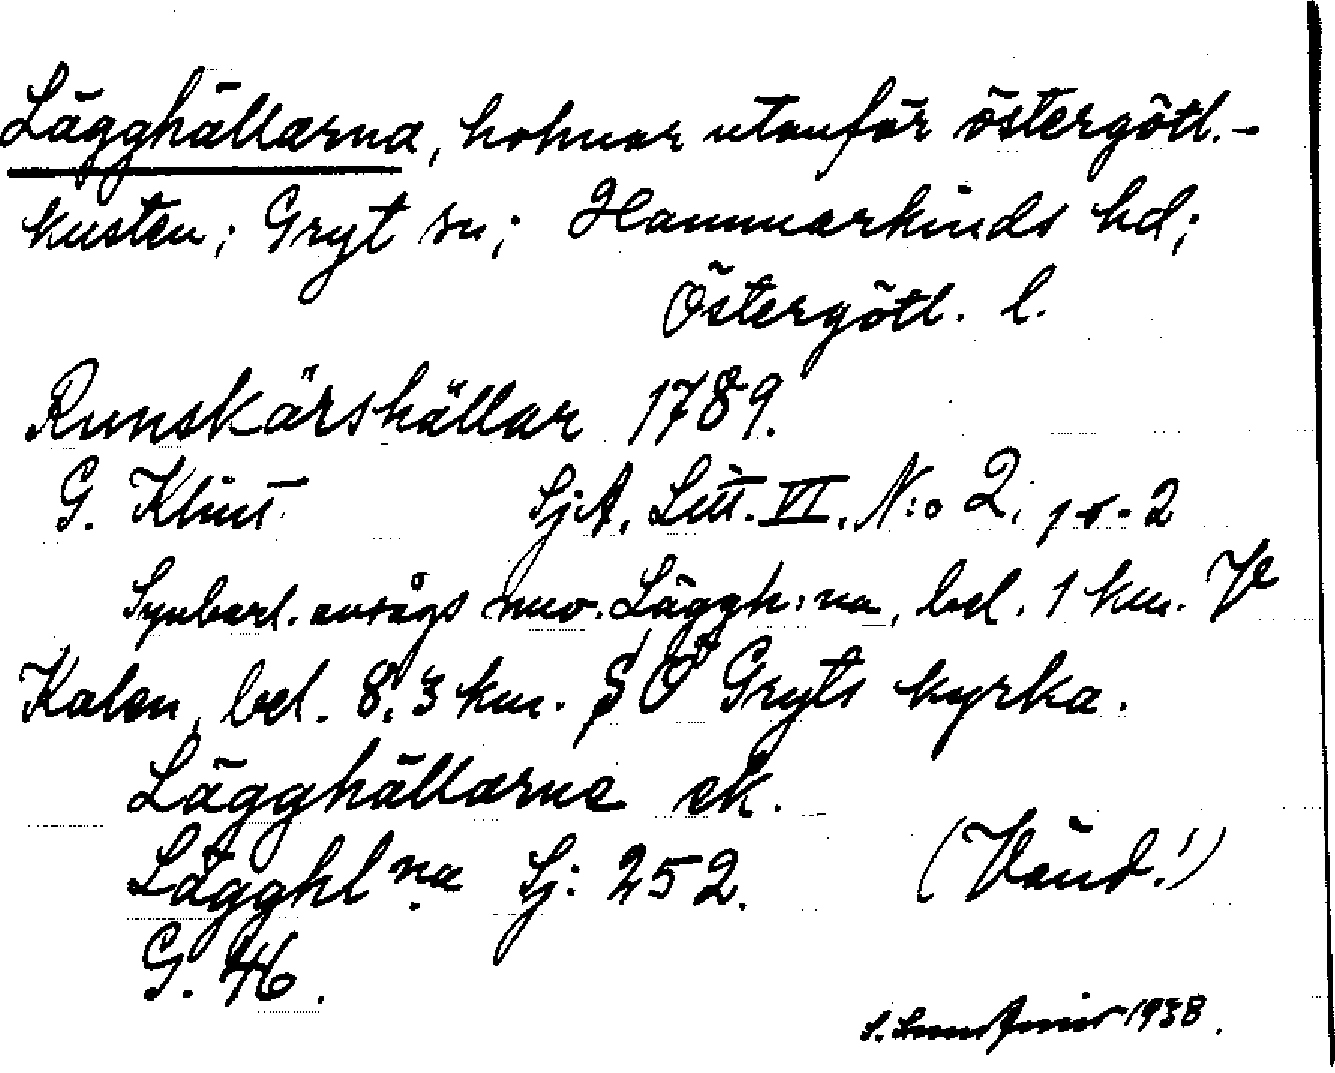 Lägghällarna, holmar utanför östergötl.-
kusten; Gryt sn; Hammarkinds hd;
Östergötl. l.
Runskärshällar 1789.
G. Klint SjA. Litt. VI. N:o 2. 2
Synbarl. avsågs nuv. Läggh:na, bel. 1 km. V
Kalen, bel. 8,3 km. SO Gryts kyrka.
Lägghällarne ek.
Lägghl na Sj: 252. (Vänd!)
G. 46.
S. 1938.